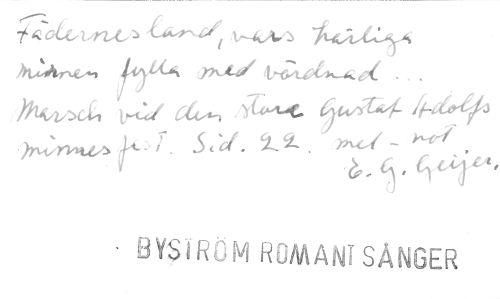 Fädernesland, vars härliga
minnen fylla med vördnad ...
Marsch vid den store Gustaf Adolfs
minnesfest. Sid. 22. mel-not
E. G. Geijer.
BYSTRÖM ROMANT SÅNGER